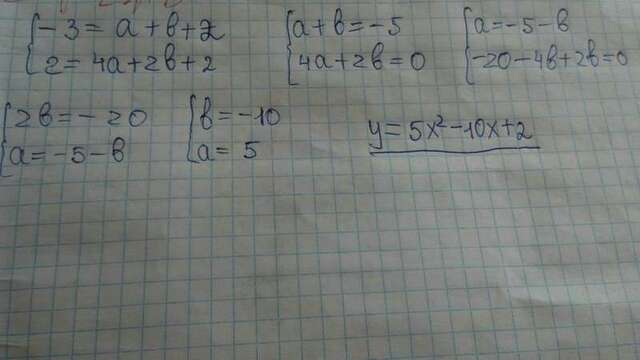 -3 = a + b + 2
2 = 4a + 2b + 2
a + b = -5
4a + 2b = 0
a = -5 - b
-20 - 4b + 2b = 0
2b = -20
a = -5 - b
b = -10
a = 5
y = 5x² - 10x + 2